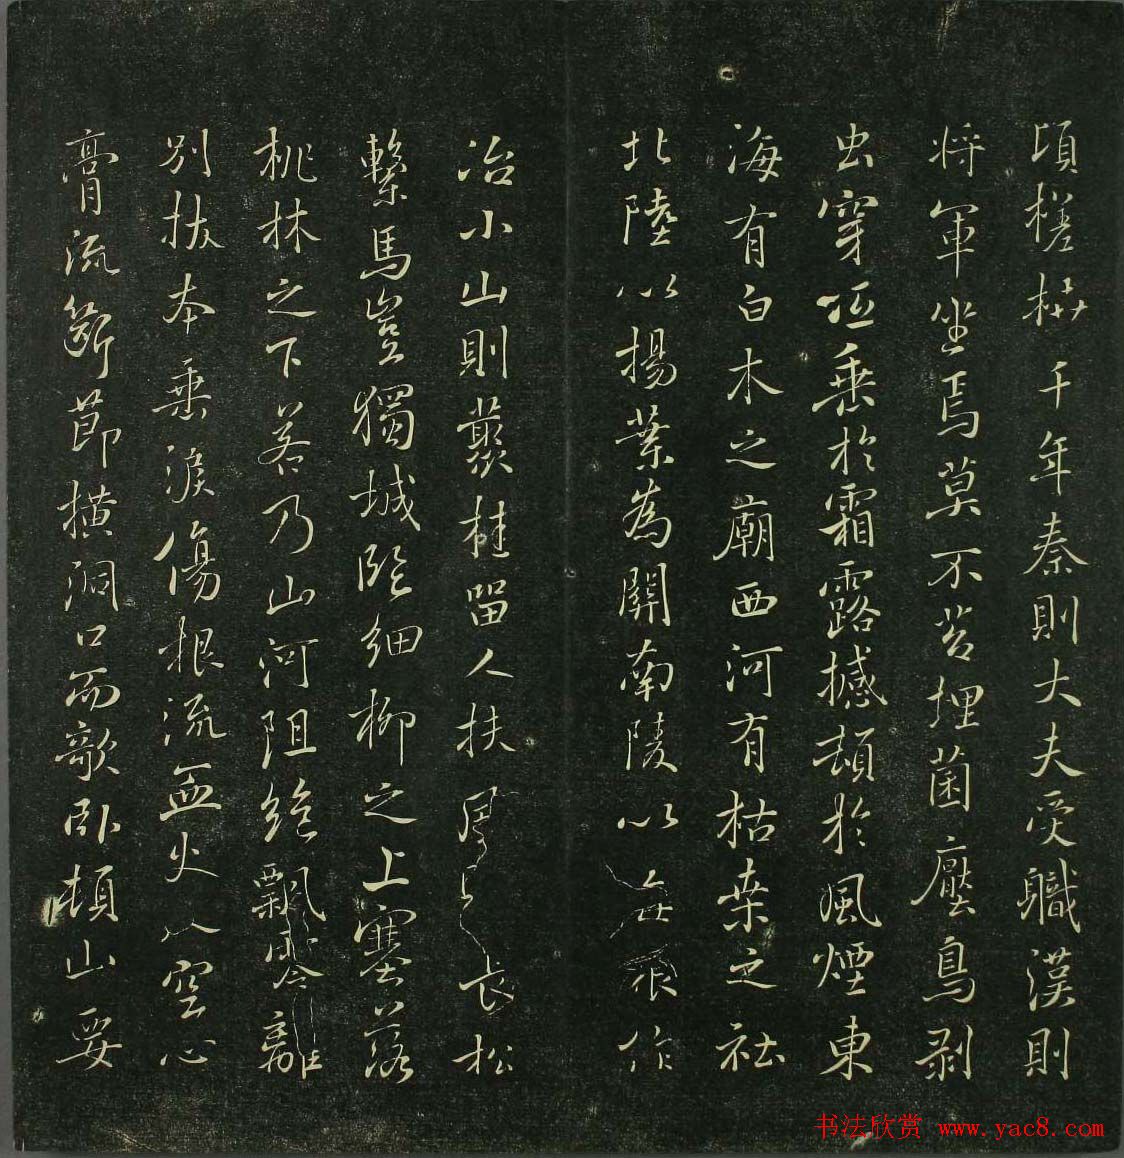 頃槎枿千年秦則大夫受職漢則
将軍坐焉莫不苔埋菌壓鳥剥
虫穿低垂於霜露撼頓於風煙東
海有白木之廟西河有枯桒之社
北陸以揚葉為關南陵以梅根作
冶小山則藂桂留人扶長松
繫馬豈獨城臨細柳之上塞落
桃林之下若乃山河阻絶飄零離
別拔本垂淚傷根流血火入空心
膏流斷節横洞口而欹卧頓山要
书法欣赏 www.yac8.com